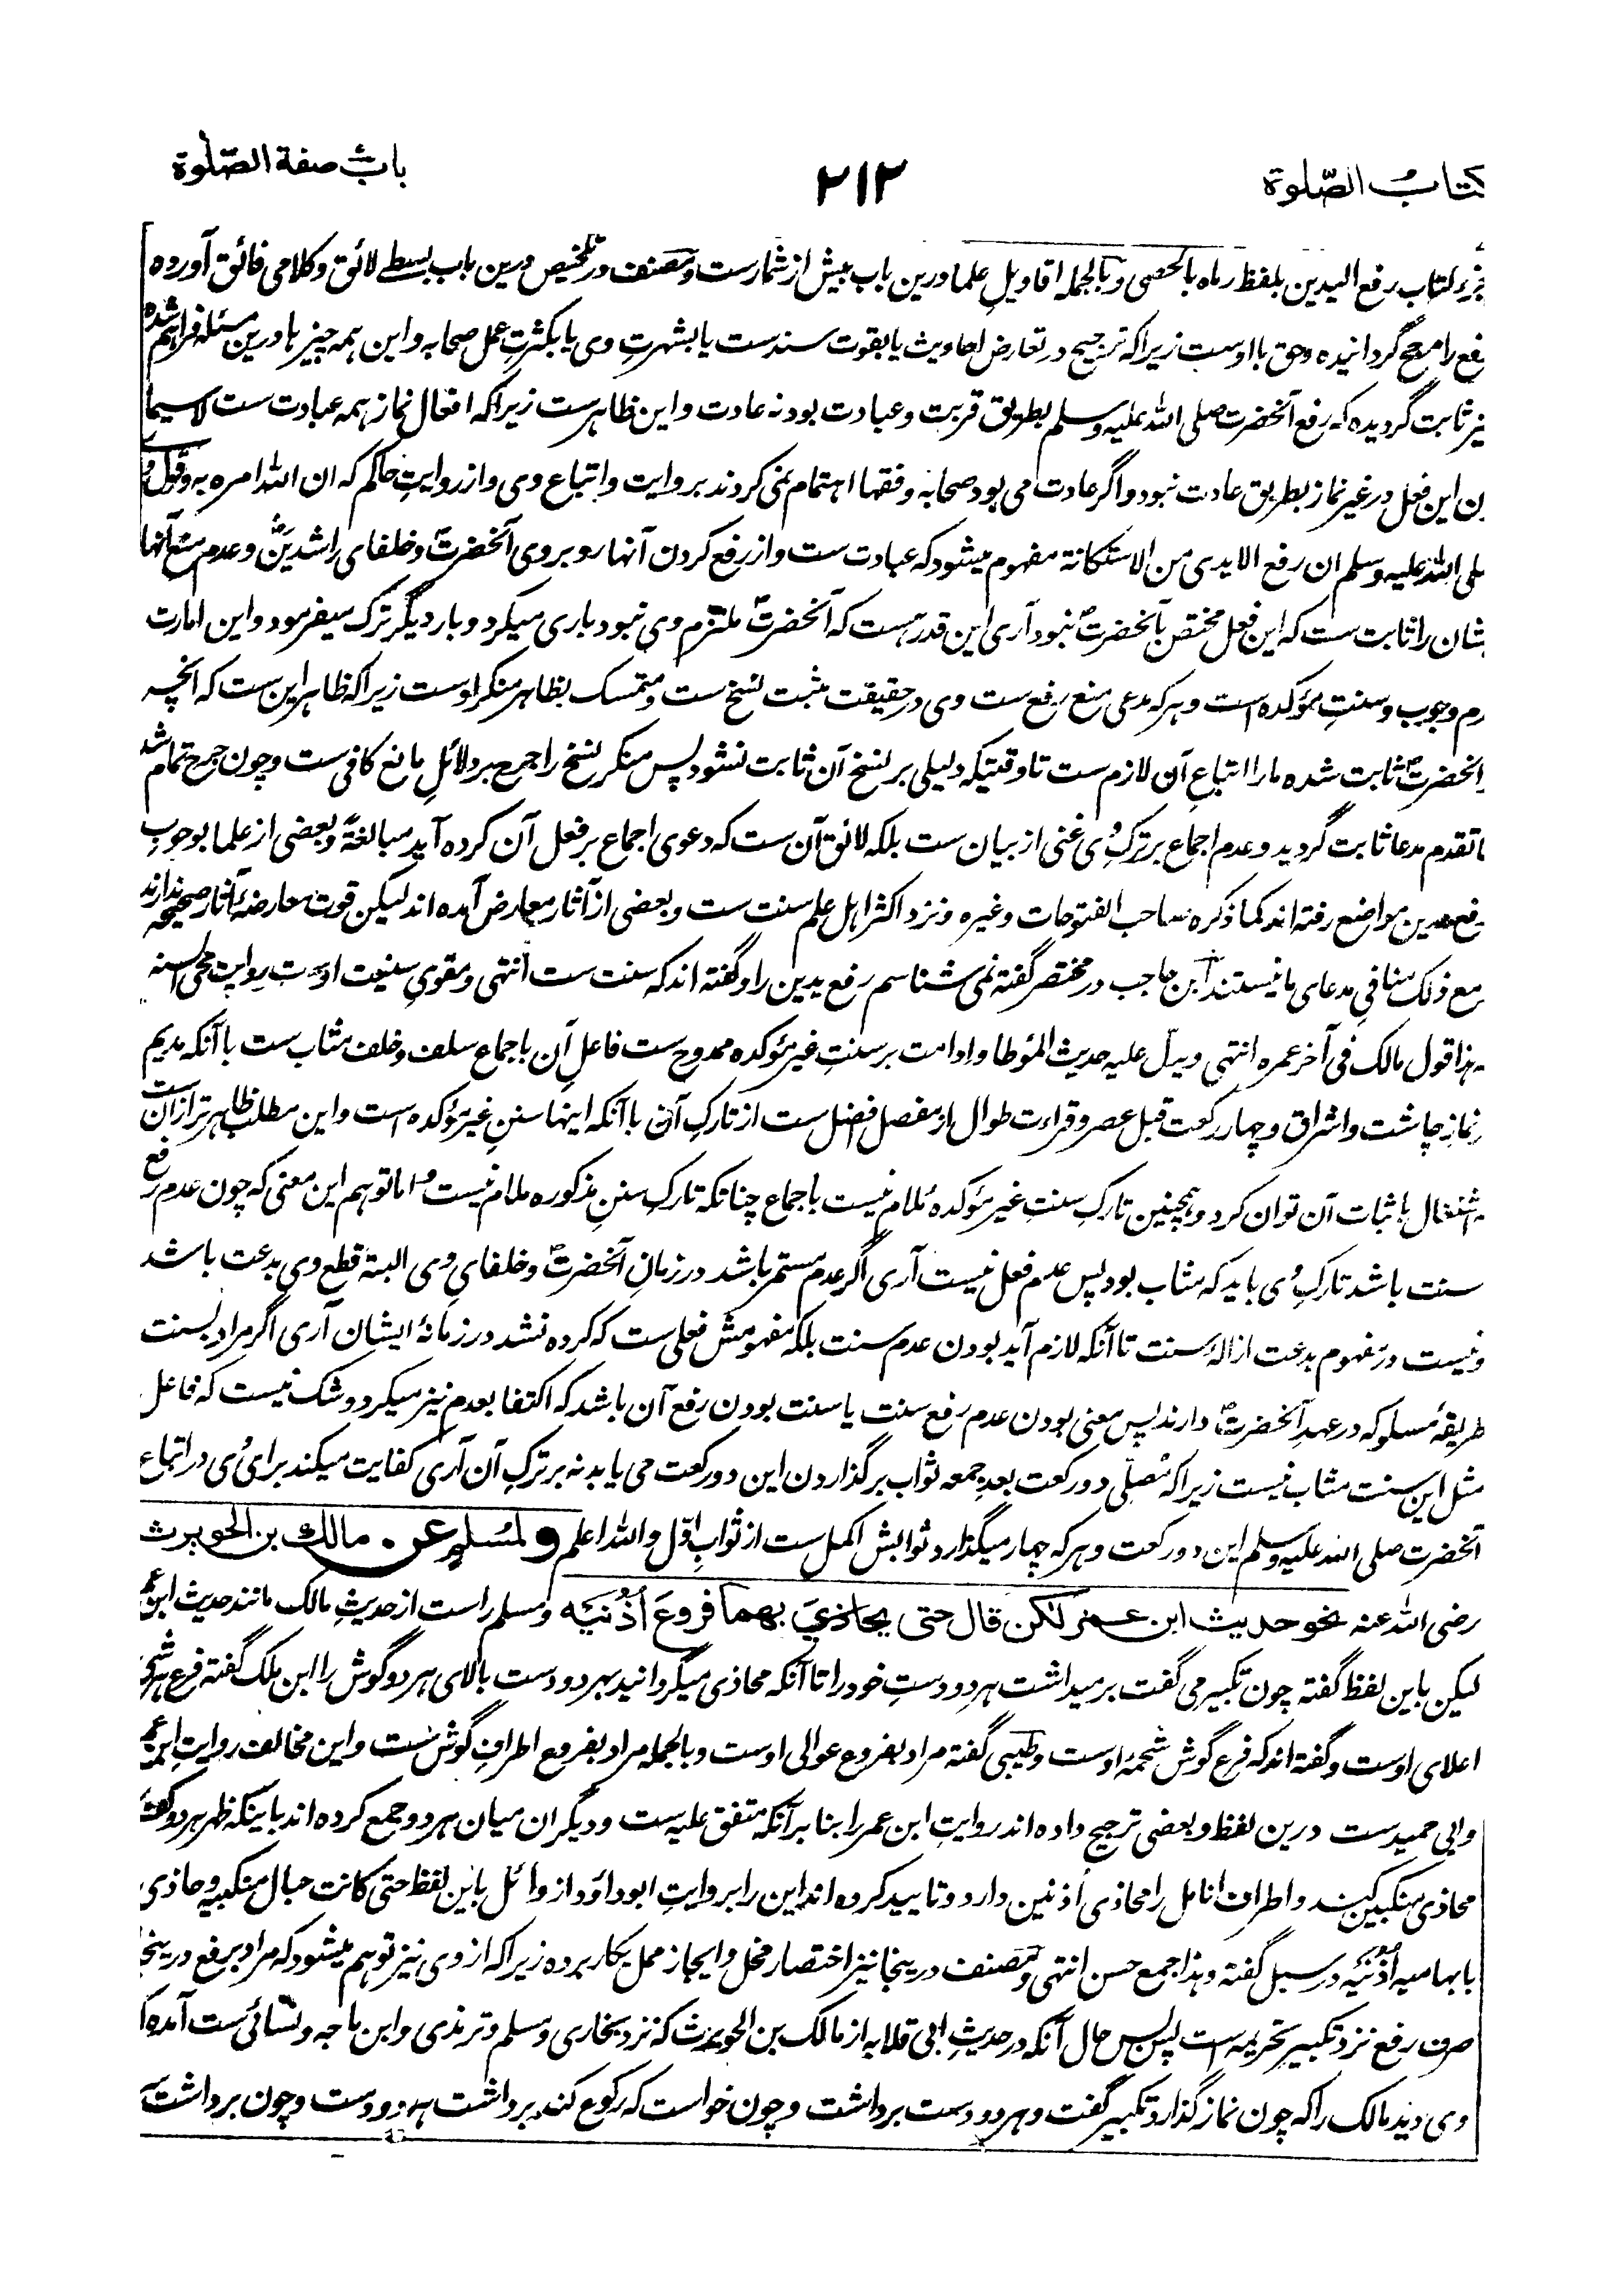 کتاب الصّلوة
۲۱۲
باب صفة الصّلوة
کتاب رفع الیدین بلفظ رماه بالحصی و بالجمله اقاویلِ علما درین باب بیش از شمارست و مصنف در تلخیص درین باب بسطے لائق و کلامی فائق آورده
را مرجح گردانیده وحق با اوست زیراکه ترجیح در تعارض احادیث یا بقوت سندست یا بشهرتِ وی یا بکثرتِ عمل صحابه و این همه چیزها درین مسئله فراهم شده
ثابت گردیده که رفع آنحضرت صلی الله علیه وسلم بطریق قربت و عبادت بود نه عادت و این ظاهرست زیراکه افعال نماز همه عبادت ست لا سیما
این فعل در غیر نماز بطریق عادت نبود و اگر عادت می بود صحابه و فقها اهتمام نمی کردند بروایت و اتباع وی و از روایتِ حاکم که ان الله امره به وقول
الله علیه وسلم ان رفع الایدی من الاستکانة مفهوم میشود که عبادت ست و از رفع کردن آنها رو بروی آنحضرتؐ و خلفای راشدینؓ و عدم منع آنها
شان را ثابت ست که این فعل مختص بآنحضرتؐ نبود آری این قدر هست که آنحضرتؐ ملتزم وی نبود باری میکرد و بار دیگر ترک میفرمود و این امارت
وجوب و سنتِ مؤکده است و هرکه مدعی منع رفع ست وی در حقیقت مثبت نسخ ست و متمسک بظاهر منکر اوست زیراکه ظاهر این ست که آنچه
آنحضرتؐ ثابت شده ما را اتباعِ آن لازم ست تا وقتیکه دلیلی بر نسخ آن ثابت نشود پس منکر نسخ را جرح بر دلائلِ مانع کافی ست و چون جرح تمام شد
ما تقدم مدعا ثابت گردید و عدم اجماع بر ترکِ وی غنی از بیان ست بلکه لائق آن ست که دعوی اجماع بر فعل آن کرده آید مبالغةً و بعضی از علما بوجوبِ
رفع درین مواضع رفته اند کما ذکره صاحب الفتوحات وغیره و نزد اکثر اهل علم سنت ست و بعضی از آثار معارض آمده اند لیکن قوت معارضهٔ آثار صحیحه ندارند
مع ذلک منافیِ مدعای ما نیستند ابن حاجب در مختصر گفته نمی شناسم رفع یدین را و گفته اند که سنت ست انتهی و مقویِ سنیت اوست روایت محی السنه
هذا قول مالک فی آخر عمره انتهی و یدل علیه حدیث المؤطا و ادامت بر سنتِ غیر مؤکده ممدوح ست فاعلِ آن باجماع سلف و خلف مثاب ست با آنکه مدیم
نمازِ چاشت و اشراق و چهار رکعت قبل عصر و قراءت طوال از مفصل افضل ست از تارکِ آن با آنکه اینها سننِ غیر مؤکده است و این مطلب ظاهرتر ازان ست
اشتغال باثبات آن توان کرد و همچنین تارکِ سنتِ غیر مؤکده مُلام نیست باجماع چنانکه تارکِ سننِ مذکوره ملام نیست و اما توهم این معنی که چون عدم رفع
سنت باشد تارکِ وی باید که مثاب بود پس عدم فعل نیست آری اگر عدم مستمر باشد در زمانِ آنحضرتؐ و خلفایِ وی البتة قطع وی بدعت باشد
و نیست در مفهوم بدعت ازالهٔ سنت تا آنکه لازم آید بودن عدم سنت بلکه مفهومش فعلی ست که کرده نشد در زمانهٔ ایشان آری اگر مراد بسنت
طریقهٔ مسلوکه در عهدِ آنحضرتؐ دارند پس معنی بودن عدم رفع سنت یا سنت بودن رفع آن باشد که اکتفا بعدم نیز میکرد و شک نیست که فاعل
مثل این سنت مثاب نیست زیراکه مُصلّی دو رکعت بعدِ جمعه ثواب بر گذاردن این دو رکعت می یابد نه بر ترکِ آن آری کفایت میکند برای وی در اتباع
آنحضرت صلی الله علیه وسلم این دو رکعت و هرکه چهار میگذارد ثوابش اکمل ست از ثوابِ اوّل و الله اعلم ولمُسلمٍ عن مالك بن الحويرث
رضی الله عنه نحو حديث ابن عمر لكن قال حتى يحاذيَ بهما فروعَ اُذُنيه و مسلم راست از حدیثِ مالک مانند حدیث ابن عمر
لیکن باین لفظ گفته چون تکبیر می گفت برمیداشت هر دو دستِ خود را تا آنکه محاذی میگردانید بهر دو دست بالای هر دو گوش را ابن ملک گفته فرع هر شی
اعلای اوست و گفته اند که فرعِ گوش شحمهٔ اوست و طیبی گفته مراد بفروع عوالی اوست و بالجمله مراد بفروع اطرافِ گوش ست و این مخالف روایتِ ابن عمر
و ابی حمیدست درین لفظ و بعضی ترجیح داده اند روایتِ ابن عمر را بنا بر آنکه متفق علیه ست و دیگران میان هر دو جمع کرده اند باینکه ظهر هر دو کف
محاذی منکبین کند و اطرافِ انامل را محاذی اُذنین دارد و تایید کرده اند این را بروایتِ ابوداؤد از وائل باین لفظ حتی کانت حیال منکبیه و حاذی
بابهامیه اُذُنیه در سبل گفته و هذا جمع حسن انتهی و مصنف درینجا نیز اختصار مخل و ایجاز ممل بکار برده زیراکه از وی نیز توهم میشود که مراد برفع درینجا
صرف رفع نزد تکبیرِ تحریمه است لیس حال آنکه در حدیثِ ابی قلابه از مالک بن الحویرث که نزد بخاری و مسلم و ترمذی و ابن ماجه و نسائی ست آمده
وی دید مالک را که چون نماز گذارد تکبیر گفت و هر دو دست برداشت و چون خواست که رکوع کند برداشت هر دو دست و چون برداشت